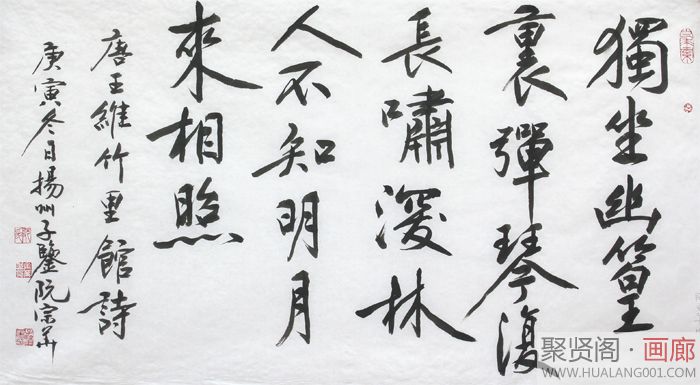 獨坐幽篁
裏彈琴復
長嘯深林
人不知明月
來相照
唐王維竹里館詩
庚寅冬日揚州子鑒阮宗華
聚贤阁·画廊
WWW.HUALANG001.COM